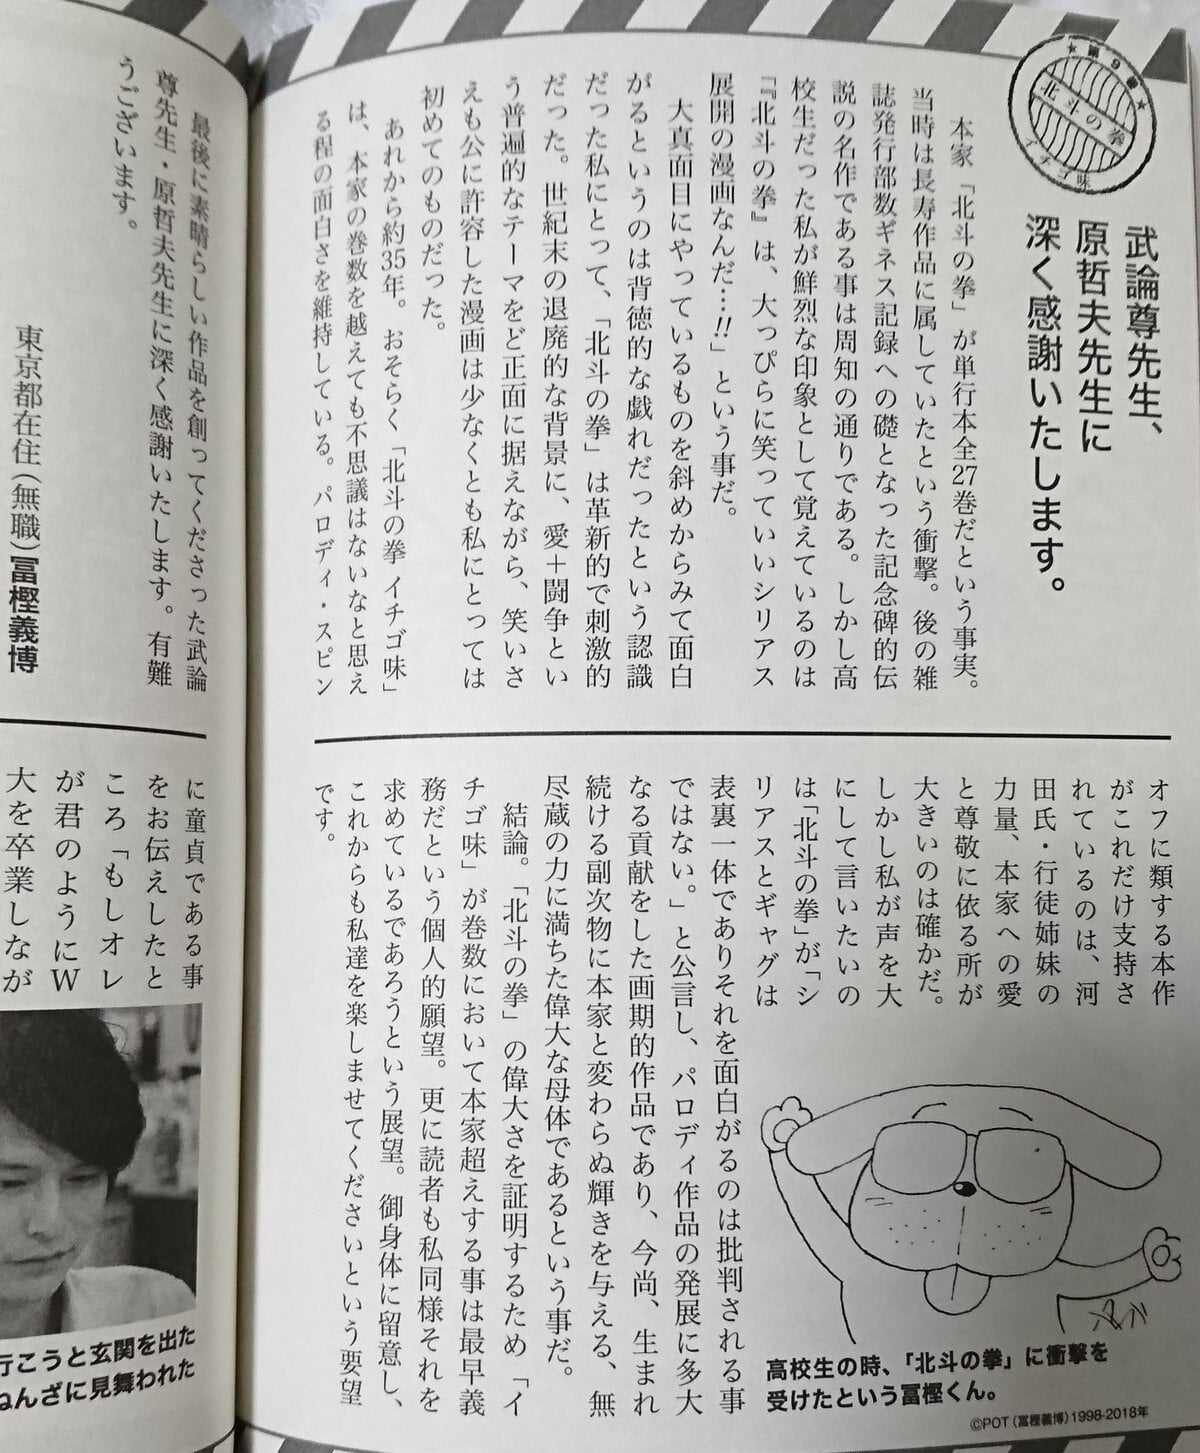 ★第9巻★
北斗の拳
イチゴ味
武論尊先生、
原哲夫先生に
深く感謝いたします。
本家「北斗の拳」が単行本全27巻だという事実。
当時は長寿作品に属していたという衝撃。後の雑
誌発行部数ギネス記録への礎となった記念碑的伝
説の名作である事は周知の通りである。しかし高
校生だった私が鮮烈な印象として覚えているのは
「『北斗の拳』は、大っぴらに笑っていいシリアス
展開の漫画なんだ…!!」という事だ。
大真面目にやっているものを斜めからみて面白
がるというのは背徳的な戯れだったという認識
だった私にとって、「北斗の拳」は革新的で刺激的
だった。世紀末の退廃的な背景に、愛＋闘争とい
う普遍的なテーマをど正面に据えながら、笑いさ
えも公に許容した漫画は少なくとも私にとっては
初めてのものだった。
あれから約35年。おそらく「北斗の拳 イチゴ味」
は、本家の巻数を越えても不思議はないなと思え
る程の面白さを維持している。パロディ・スピン
オフに類する本作
がこれだけ支持さ
れているのは、河
田氏・行徒姉妹の
力量、本家への愛
と尊敬に依る所が
大きいのは確かだ。
しかし私が声を大
にして言いたいの
は「北斗の拳」が「シ
リアスとギャグは
表裏一体でありそれを面白がるのは批判される事
ではない。」と公言し、パロディ作品の発展に多大
なる貢献をした画期的作品であり、今尚、生まれ
続ける副次物に本家と変わらぬ輝きを与える、無
尽蔵の力に満ちた偉大な母体であるという事だ。
結論。「北斗の拳」の偉大さを証明するため「イ
チゴ味」が巻数において本家超えする事は最早義
務だという個人的願望。更に読者も私同様それを
求めているであろうという展望。御身体に留意し、
これからも私達を楽しませてくださいという要望
です。
高校生の時、「北斗の拳」に衝撃を
受けたという冨樫くん。
©POT（冨樫義博）1998-2018年
最後に素晴らしい作品を創ってくださった武論
尊先生・原哲夫先生に深く感謝いたします。有難
うございます。
東京都在住（無職）冨樫義博
に童貞である事
をお伝えしたと
ころ「もしオレ
が君のようにW
大を卒業しなが
行こうと玄関を出た
ねんざに見舞われた